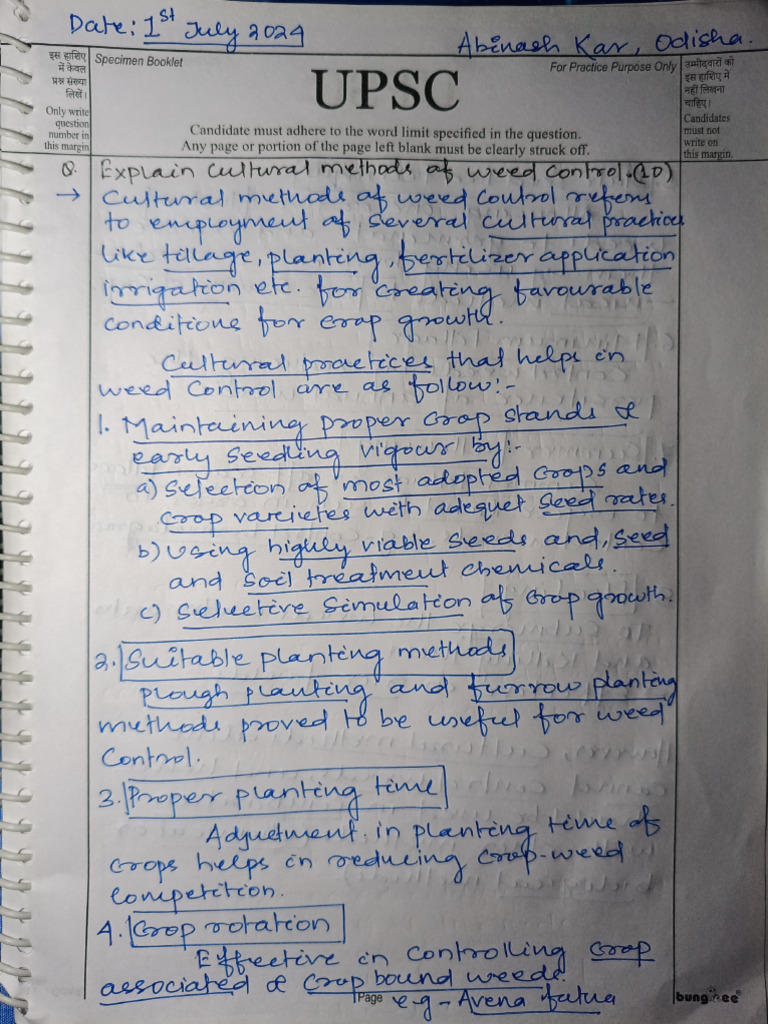 Date: 1st July 2024
Abinash Kar, Odisha.
इस हाशिए
में केवल
प्रश्न संख्या
लिखें।
Only write
question
number in
this margin
Specimen Booklet
For Practice Purpose Only
UPSC
Candidate must adhere to the word limit specified in the question.
Any page or portion of the page left blank must be clearly struck off.
उम्मीदवारों को
इस हाशिए में
नहीं लिखना
चाहिए।
Candidates
must not
write on
this margin.
Q. Explain cultural methods of weed control. (10)
→ Cultural methods of weed control refers
to employment of several cultural practices
like tillage, planting, fertilizer application
irrigation etc. for creating favourable
conditions for crop growth.
Cultural practices that helps in
weed control are as follow:-
1. Maintaining proper crop stands &
early seedling vigour by:-
a) Selection of most adopted crops and
crop varieties with adequet seed rates.
b) Using highly viable seeds and, seed
and soil treatment chemicals.
c) Selective Simulation of crop growth.
2. Suitable planting methods
plough planting and furrow planting
methods proved to be useful for weed
control.
3. Proper planting time
Adjustment in planting time of
crops helps in reducing crop-weed
competition.
4. Crop rotation
Effective in controlling crop
associated & crop bound weeds.
Page e.g - Avena fatua
bungree